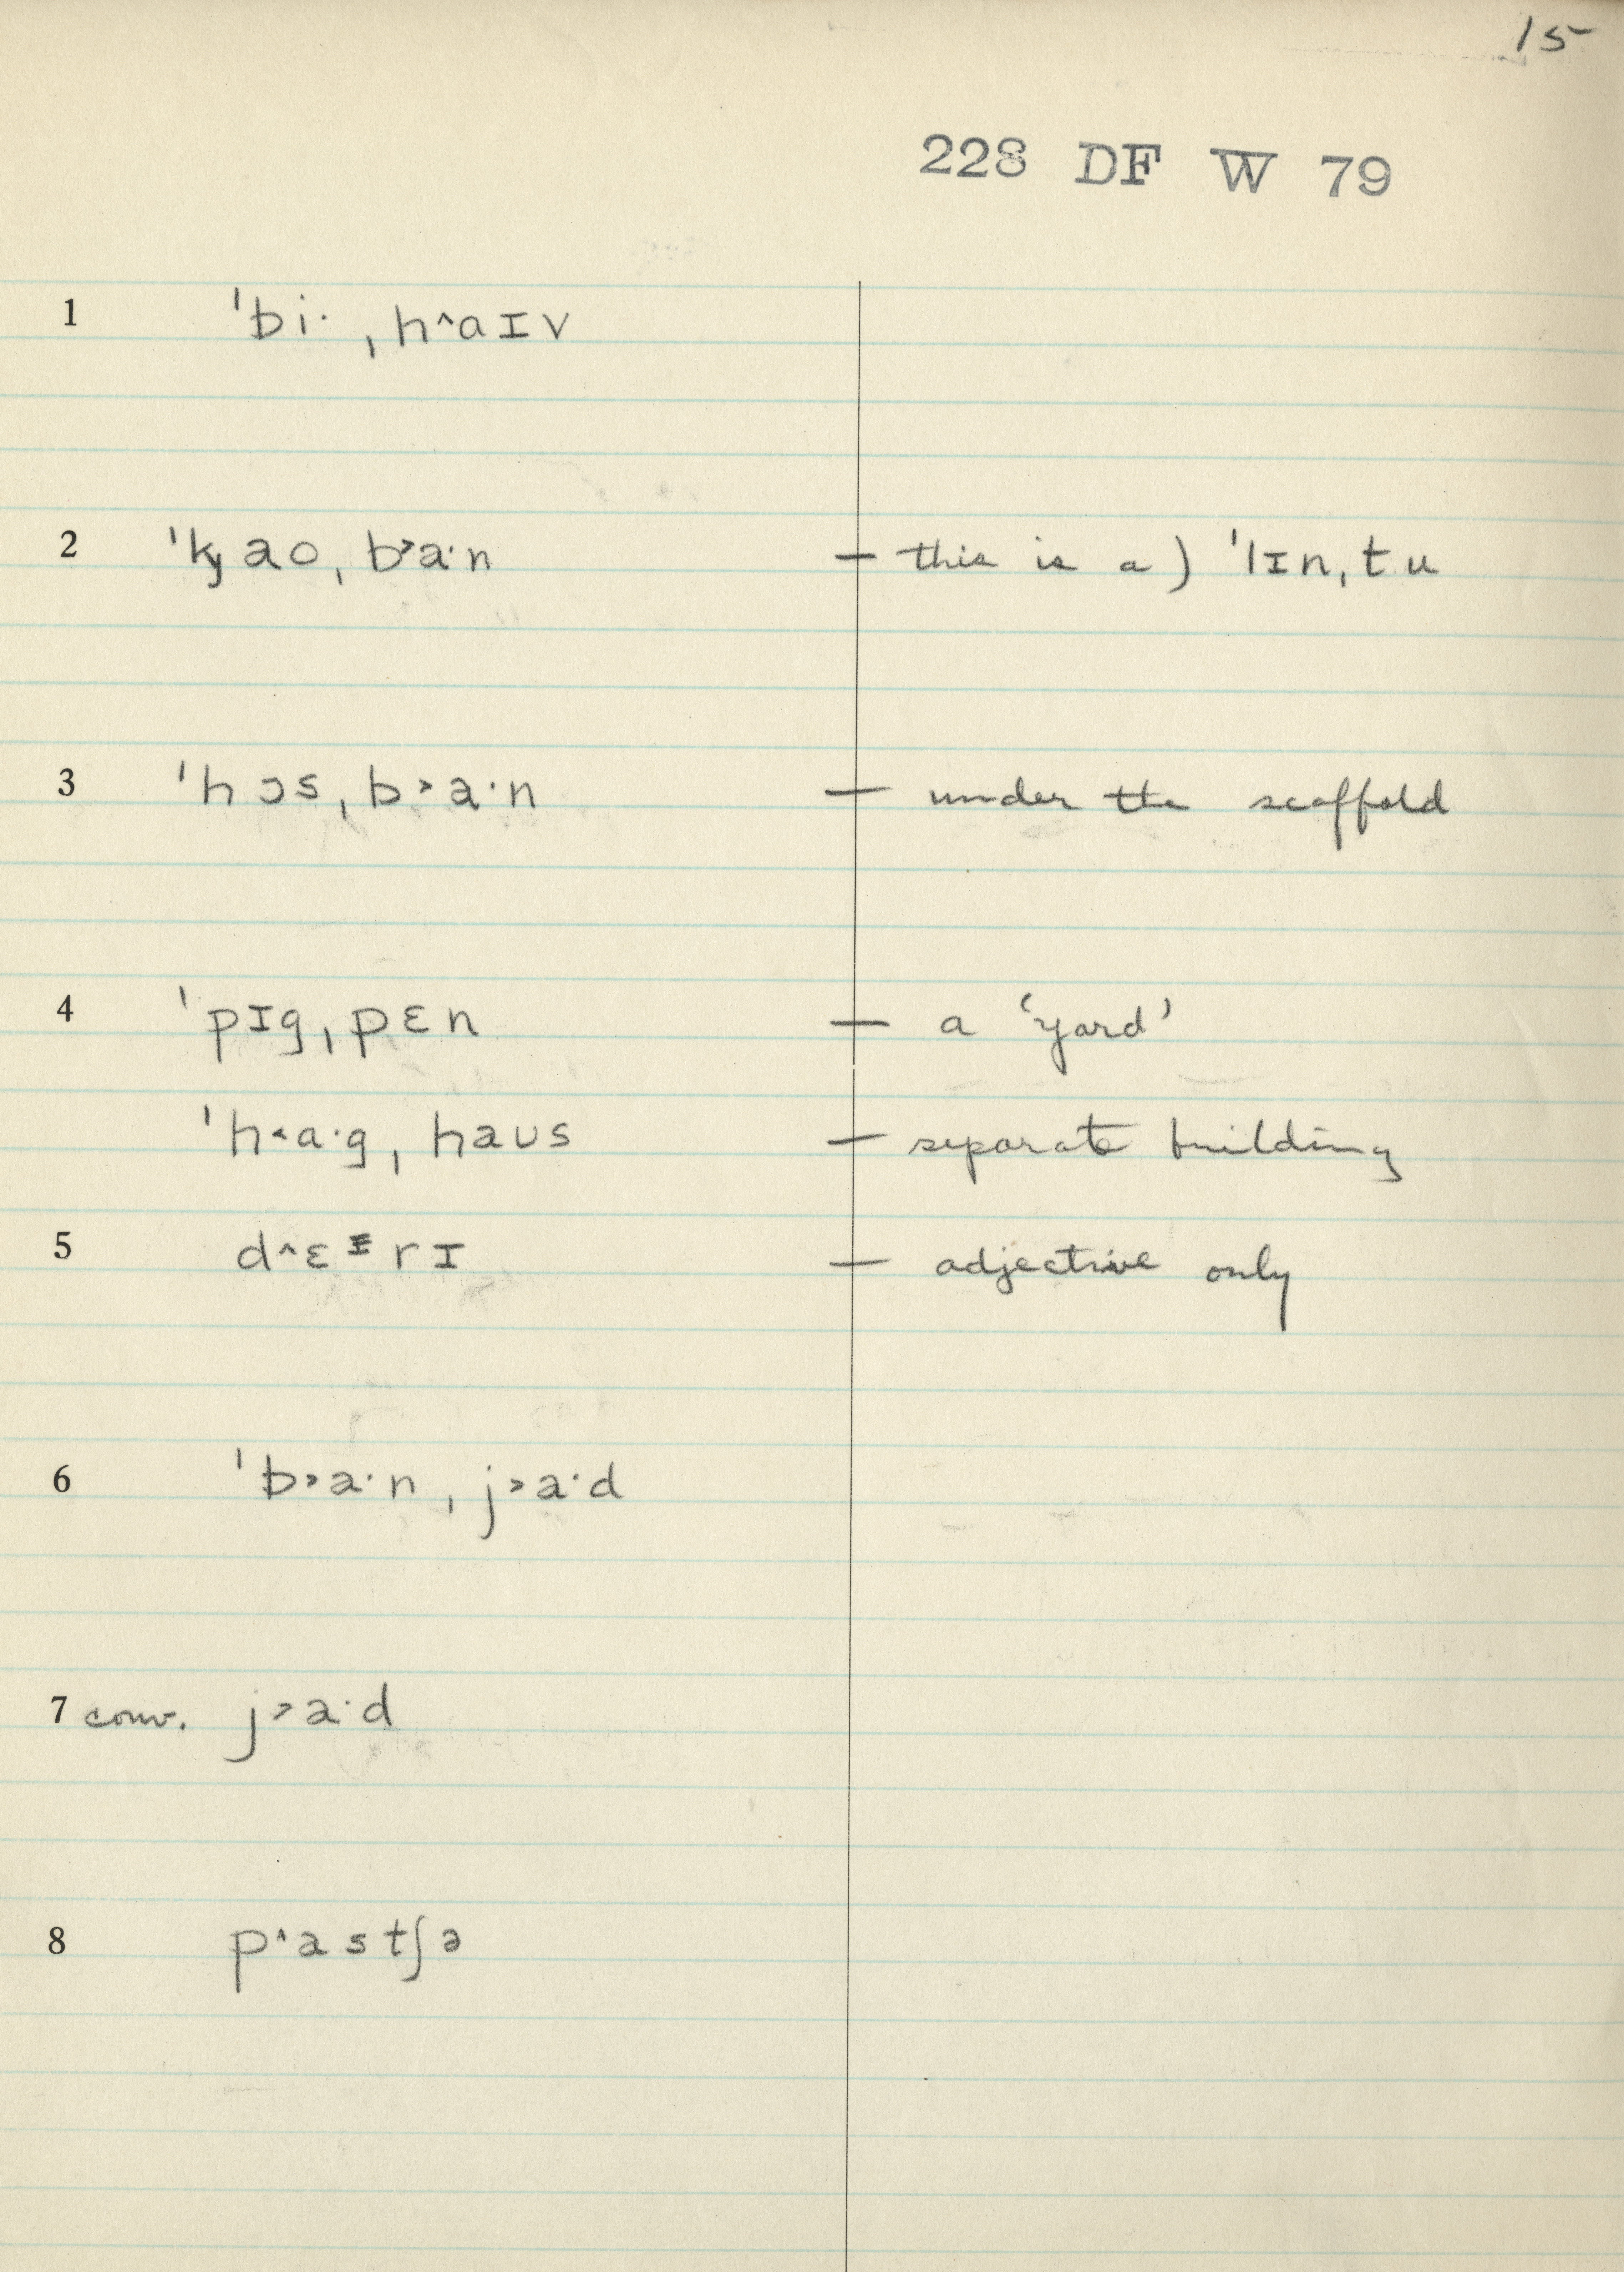 15
228 DF W 79
1 ˈbi· ˌh^aɪv
2 ˈkȷao ˌb˃a·n — this is a ) ˈlɪnˌtu
3 ˈhɔsˌb˃a·n — under the scaffold
4 ˈpɪgˌpɛn — a ‘yard’
ˈh˂a·gˌhaʊs — separate building
5 d^ɛɪrɪ — adjective only
6 ˈb˃a·nˌj˃a·d
7 conv. j˃a·d
8 p^astʃə